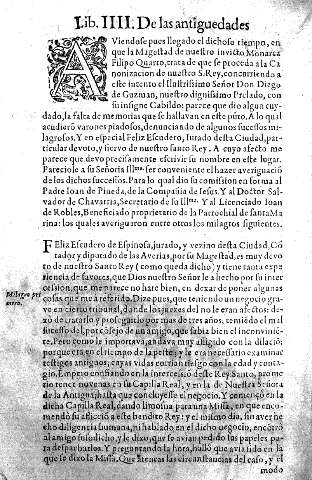 Lib. IIII. De las antiguedades
AViendose pues llegado el dichoso tiempo, en
que la Magestad de nuestro invicto Monarca
Filipo Quarto, trata de que se proceda a la Ca-
nonizacion de nuestro S. Rey, concurriendo a
este intento el Illustrissimo Señor Don Diego
de Guzman, nuestro dignissimo Prelado, con
su insigne Cabildo: parece que dio algun cuy-
dado, la falta de memorias que se hallavan en este pũto. A lo qual
acudierõ varones piadosos, denunciando de algunos sucessos mi-
lagrosos. Y en especial, Felix Escudero, Iurado desta Ciudad, par-
ticular devoto, y siervo de nuestro santo Rey. A cuyo afecto me
parece que devo precisamente escrivir su nombre en este lugar.
Pareciole a su Señoria Illma. ser conveniente el hacer averiguació
de los dichos successos. Para lo qual dio su comission en forma al
Padre Ioan de Pineda, de la Compañia de Iesus. Y al Doctor Sal-
vador de Chavarria, Secretario de su Illma. Y al Licenciado Ioan
de Robles, Beneficiado proprietario de la Parrochial de santa Ma
rina: los quales averiguaron entre otros los milagros siguientes.
Milagro pri
mero.
FEliz Escudero de Espinosa, jurado, y vezino desta Ciudad, Cõ
tador y diputado de las Averias, por su Magestad, es muy devo
to de nuestro Santo Rey (como queda dicho) y tiene tanta expe
riencia de favores, que Dios nuestro Señor le a hecho por su inter
cession, que me parece no hare bien, en dexar de poner algunas
cosas que me a referido. Dize pues, que teniendo un negocio gra
ve en cierto tribunal, donde los juezes del no le eran afectos: dexó
de tratarlo y proseguirlo por mas de tres años, temiédo el mal
sucesso del, por cósejo de un amigo, que sabia bien el inconvinié-
te. Pero como le importava, andava muy afligido con la dilació:
porque era en el tiempo de la peste: y le era necessario examinar
testigos antiguos, cuyas vidas corrian riesgo con la edad y conta-
gio. Empero confiando en la intercession deste Rey Santo, prome
tio tener novenas en su Capilla Real, y en la de Nuestra Señora
de la Antigua, hasta que concluyesse el negocio. Y començó en la
dicha Capilla Real, dando limosna para una Missa, en que enco-
mendó su afliccion a este bendito Rey: y el mismo dia, sin aver he
cho diligencia humana, ni hablado en el dicho negocio, encontró
al amigo susodicho, y le dixo, que se avian pedido los papeles pa-
ra despacharlos. Y preguntando la hora, halló que avia sido en la
que se dixo la Missa. Que atentas las circunstancias del caso, y el
modo